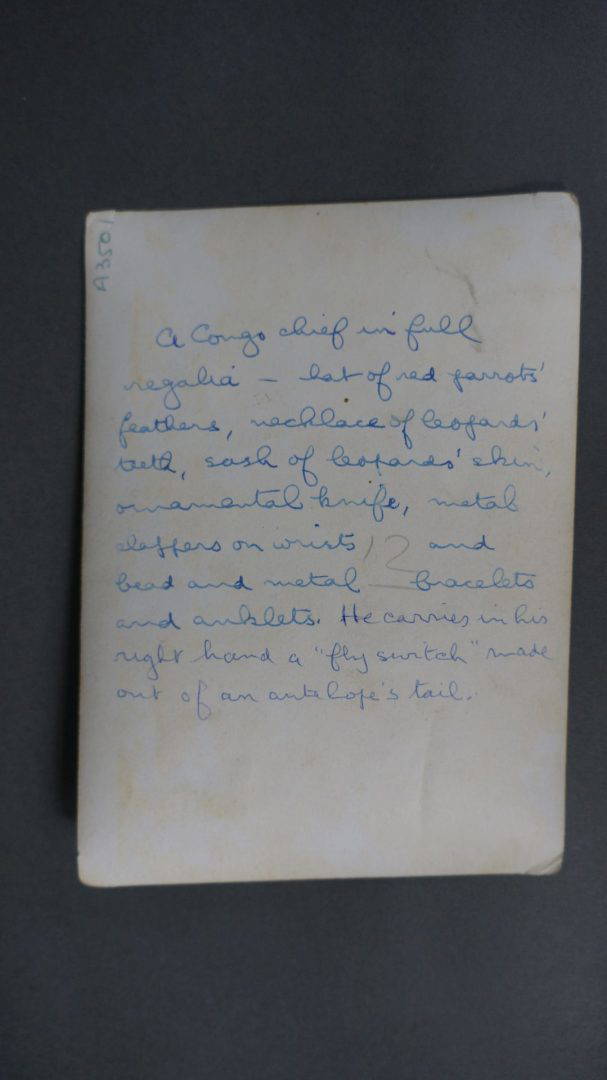 A3501
A Congo chief in full
regalia — hat of red parrots'
feathers, necklace of leopards'
teeth, sash of leopards' skin,
ornamental knife, metal
clappers on wrists 12 and
bead and metal bracelets
and anklets. He carries in his
right hand a "fly switch" made
out of an antelope's tail.